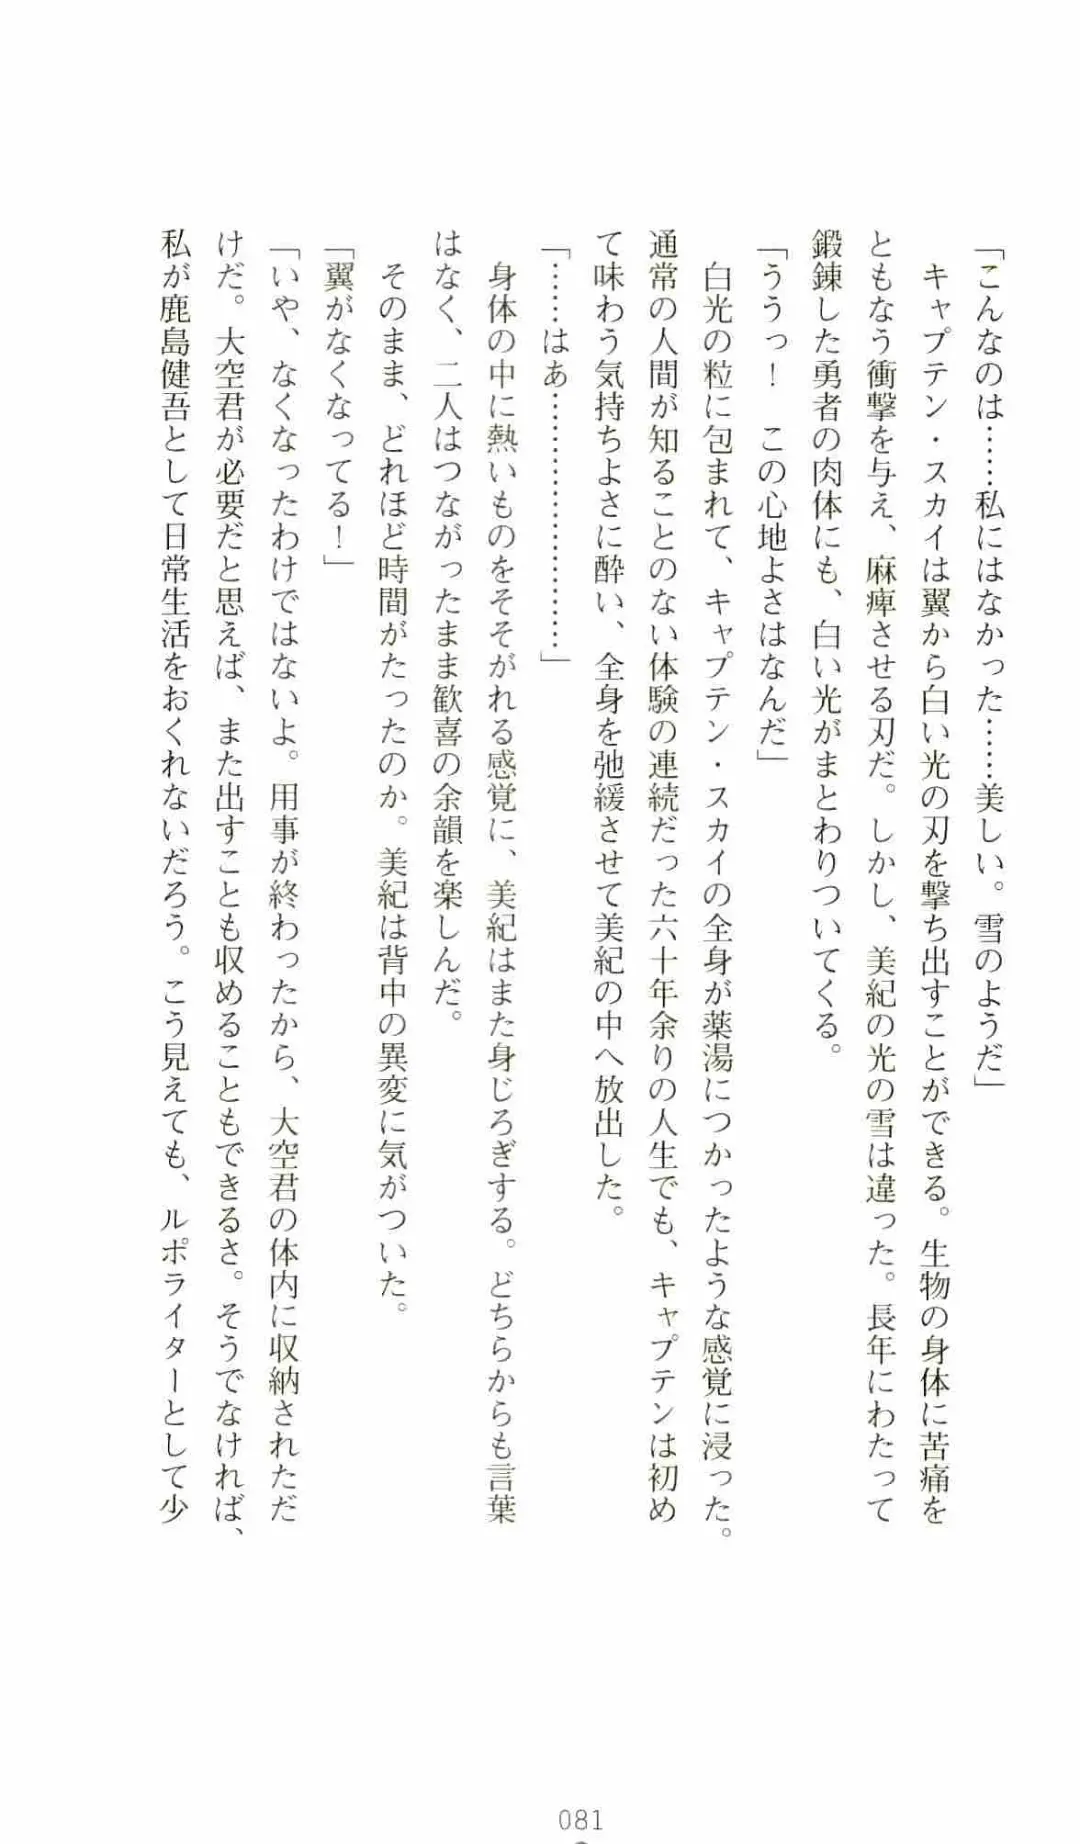 「こんなのは……私にはなかった……美しい。雪のようだ」
　キャプテン・スカイは翼から白い光の刃を撃ち出すことができる。生物の身体に苦痛を
ともなう衝撃を与え、麻痺させる刃だ。しかし、美紀の光の雪は違った。長年にわたって
鍛錬した勇者の肉体にも、白い光がまとわりついてくる。
「ううっ！　この心地よさはなんだ」
　白光の粒に包まれて、キャプテン・スカイの全身が薬湯につかったような感覚に浸った。
通常の人間が知ることのない体験の連続だった六十年余りの人生でも、キャプテンは初め
て味わう気持ちよさに酔い、全身を弛緩させて美紀の中へ放出した。
「……はぁ……………………」
　身体の中に熱いものをそそがれる感覚に、美紀はまた身じろぎする。どちらからも言葉
はなく、二人はつながったまま歓喜の余韻を楽しんだ。
　そのまま、どれほど時間がたったのか。美紀は背中の異変に気がついた。
「翼がなくなってる！」
「いや、なくなったわけではないよ。用事が終わったから、大空君の体内に収納されただ
けだ。大空君が必要だと思えば、また出すことも収めることもできるさ。そうでなければ、
私が鹿島健吾として日常生活をおくれないだろう。こう見えても、ルポライターとして少
081